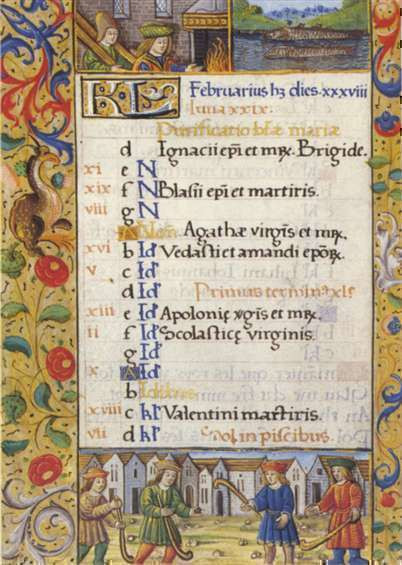 KL Februarius hz dies. xxxviii
luna xxix.
Purificatio bte marie
d Ignacii epi et mr. Brigide.
xi e N
xix f N Blasii epi et martiris.
viii g N
A Non. Agathe virgis et mr.
xvi b Id' Vedasti et amandi epor.
v c Id'
d Id' Primus termin axle
xiii e Id' Apolonie vgis et mr.
ii f Id' Scolastice virginis.
g Id'
x A Id'
b Idibus
xviii c kl' Valentini martiris.
vii d kl' Sol in piscibus.